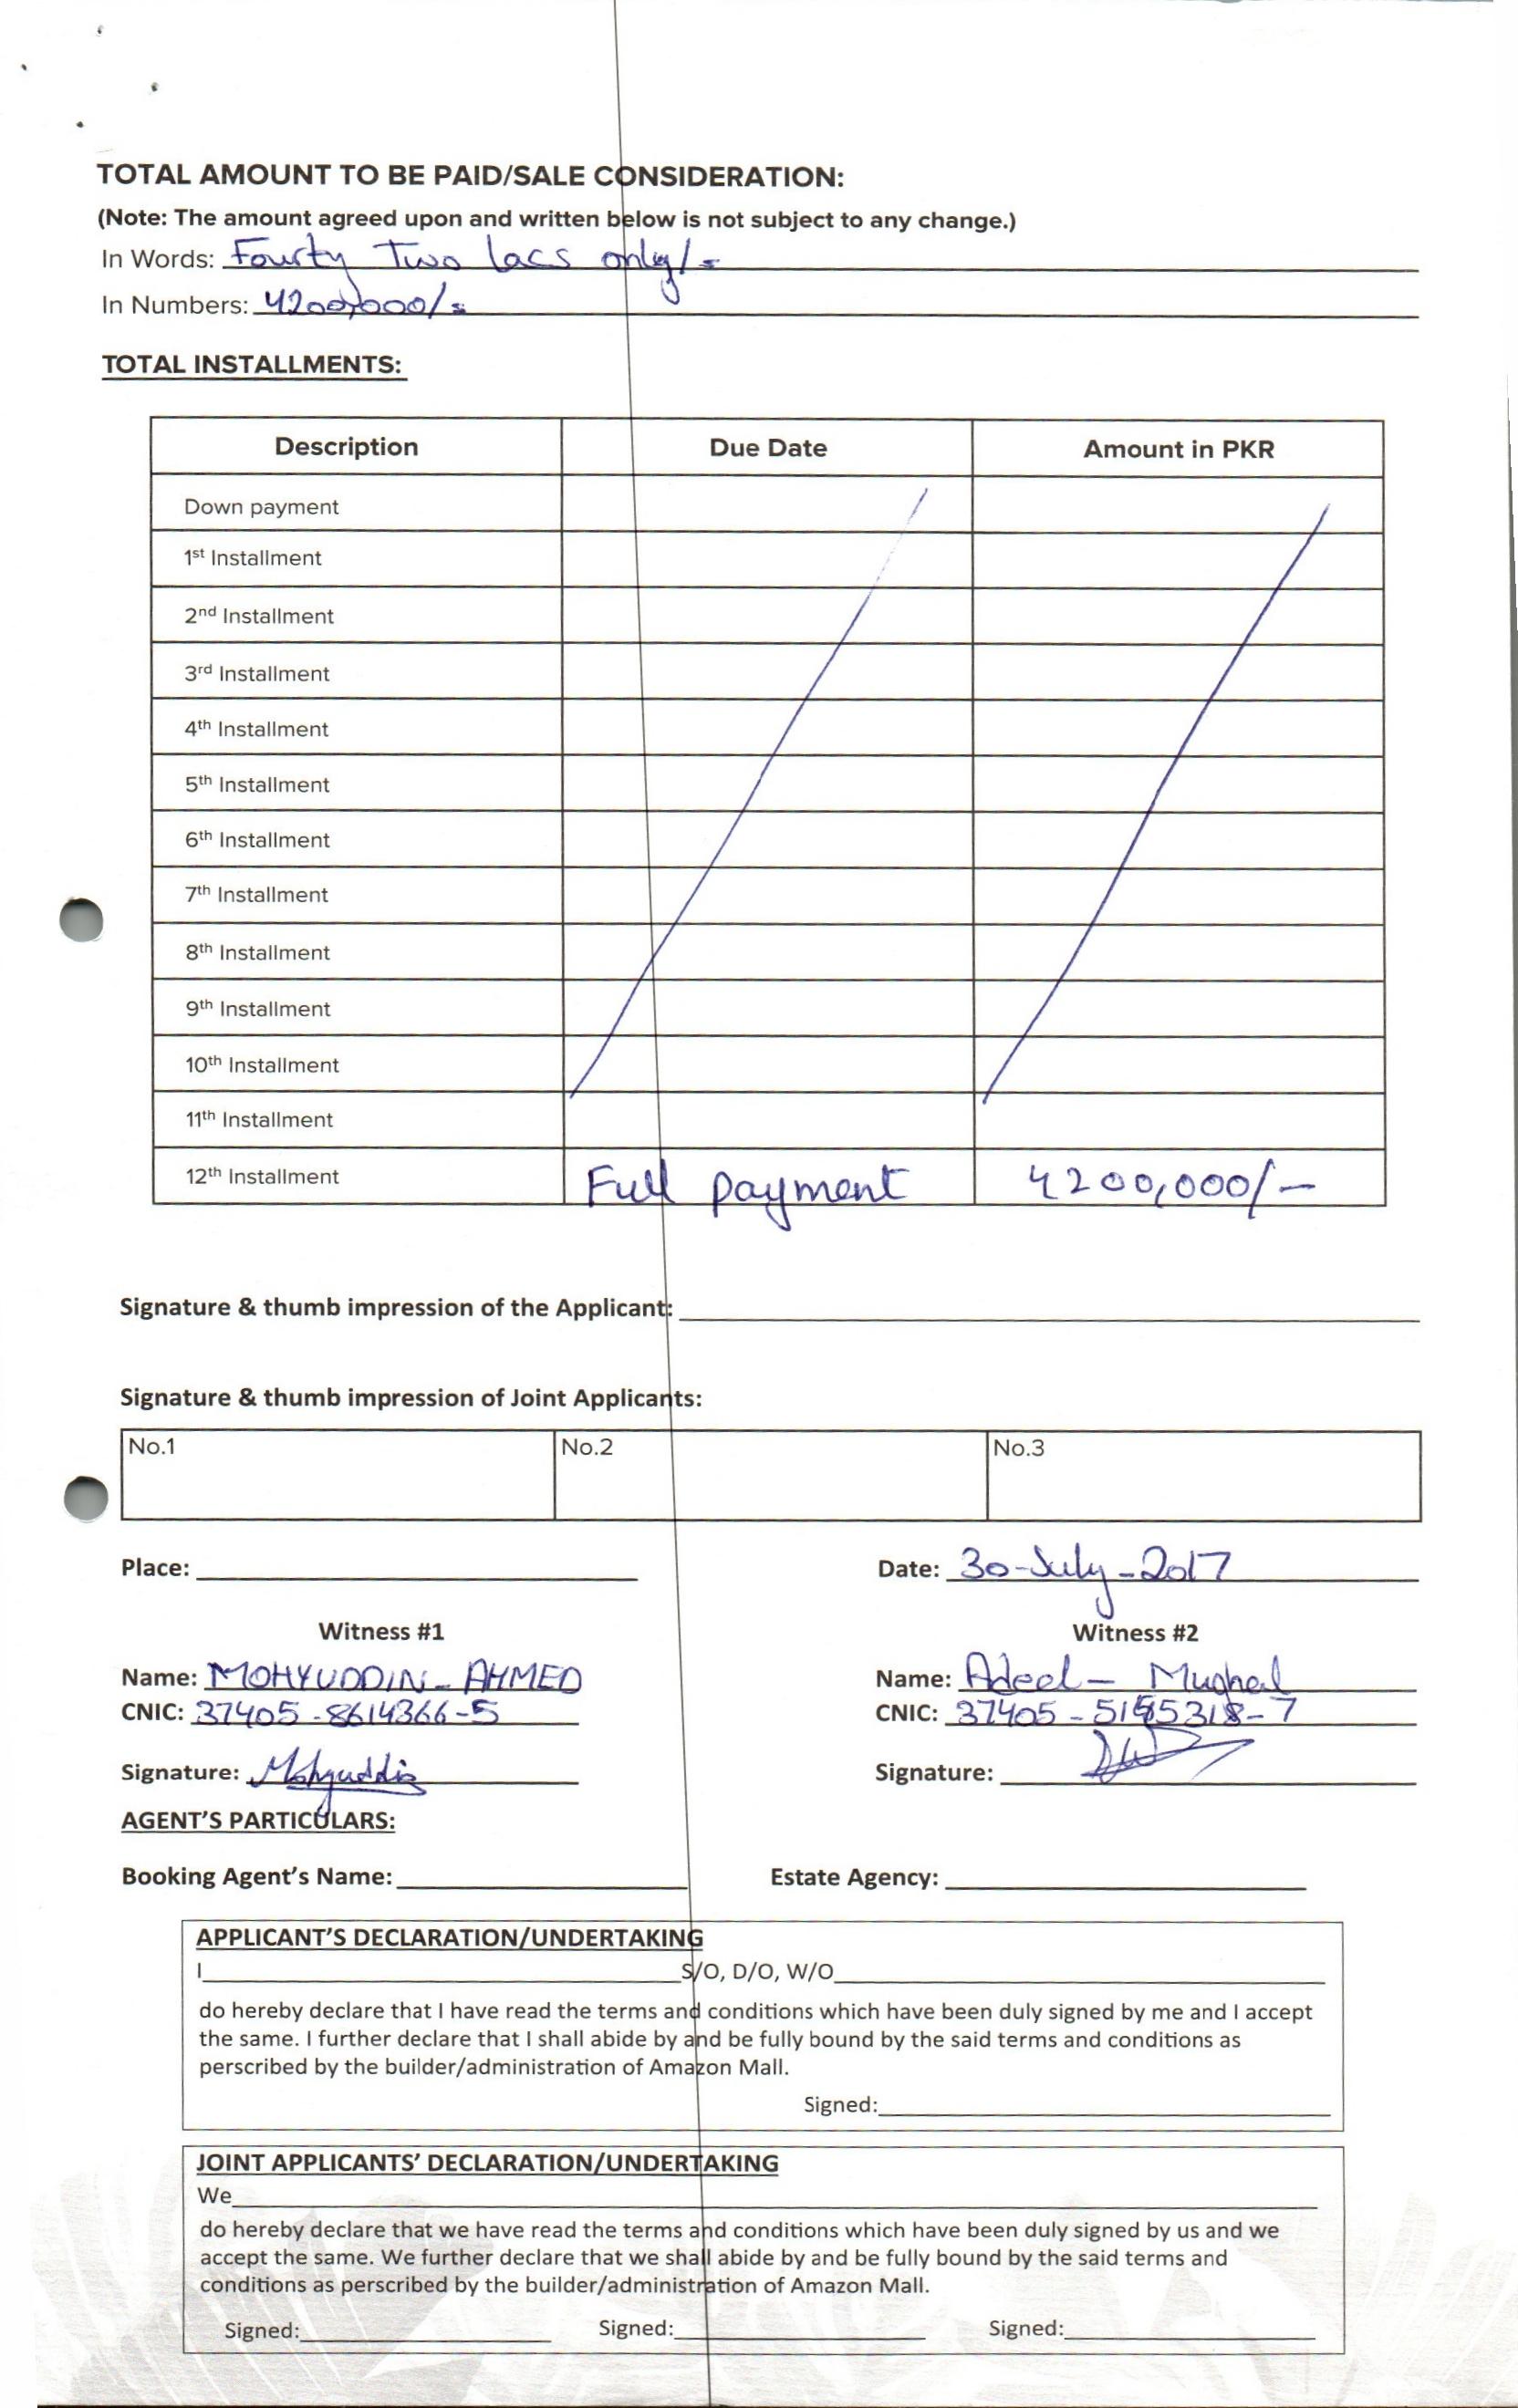 TOTAL AMOUNT TO BE PAID/SALE CONSIDERATION:
(Note: The amount agreed upon and written below is not subject to any change.)
In Words: Fourty Two lacs only/=
In Numbers: 4200,000/=
TOTAL INSTALLMENTS:
Description Due Date Amount in PKR
Down payment
1st Installment
2nd Installment
3rd Installment
4th Installment
5th Installment
6th Installment
7th Installment
8th Installment
9th Installment
10th Installment
11th Installment
12th Installment Full payment 4200,000/-
Signature & thumb impression of the Applicant:
Signature & thumb impression of Joint Applicants:
No.1 No.2 No.3
Place: Date: 30-July-2017
Witness #1 Witness #2
Name: MOHYUDDIN-AHMED Name: Adeel- Mughal
CNIC: 37405-8614366-5 CNIC: 37405-5155318-7
Signature: Mohyuddin Signature:
AGENT'S PARTICULARS:
Booking Agent's Name: Estate Agency:
APPLICANT'S DECLARATION/UNDERTAKING
I S/O, D/O, W/O
do hereby declare that I have read the terms and conditions which have been duly signed by me and I accept
the same. I further declare that I shall abide by and be fully bound by the said terms and conditions as
perscribed by the builder/administration of Amazon Mall.
Signed:
JOINT APPLICANTS' DECLARATION/UNDERTAKING
We
do hereby declare that we have read the terms and conditions which have been duly signed by us and we
accept the same. We further declare that we shall abide by and be fully bound by the said terms and
conditions as perscribed by the builder/administration of Amazon Mall.
Signed: Signed: Signed: